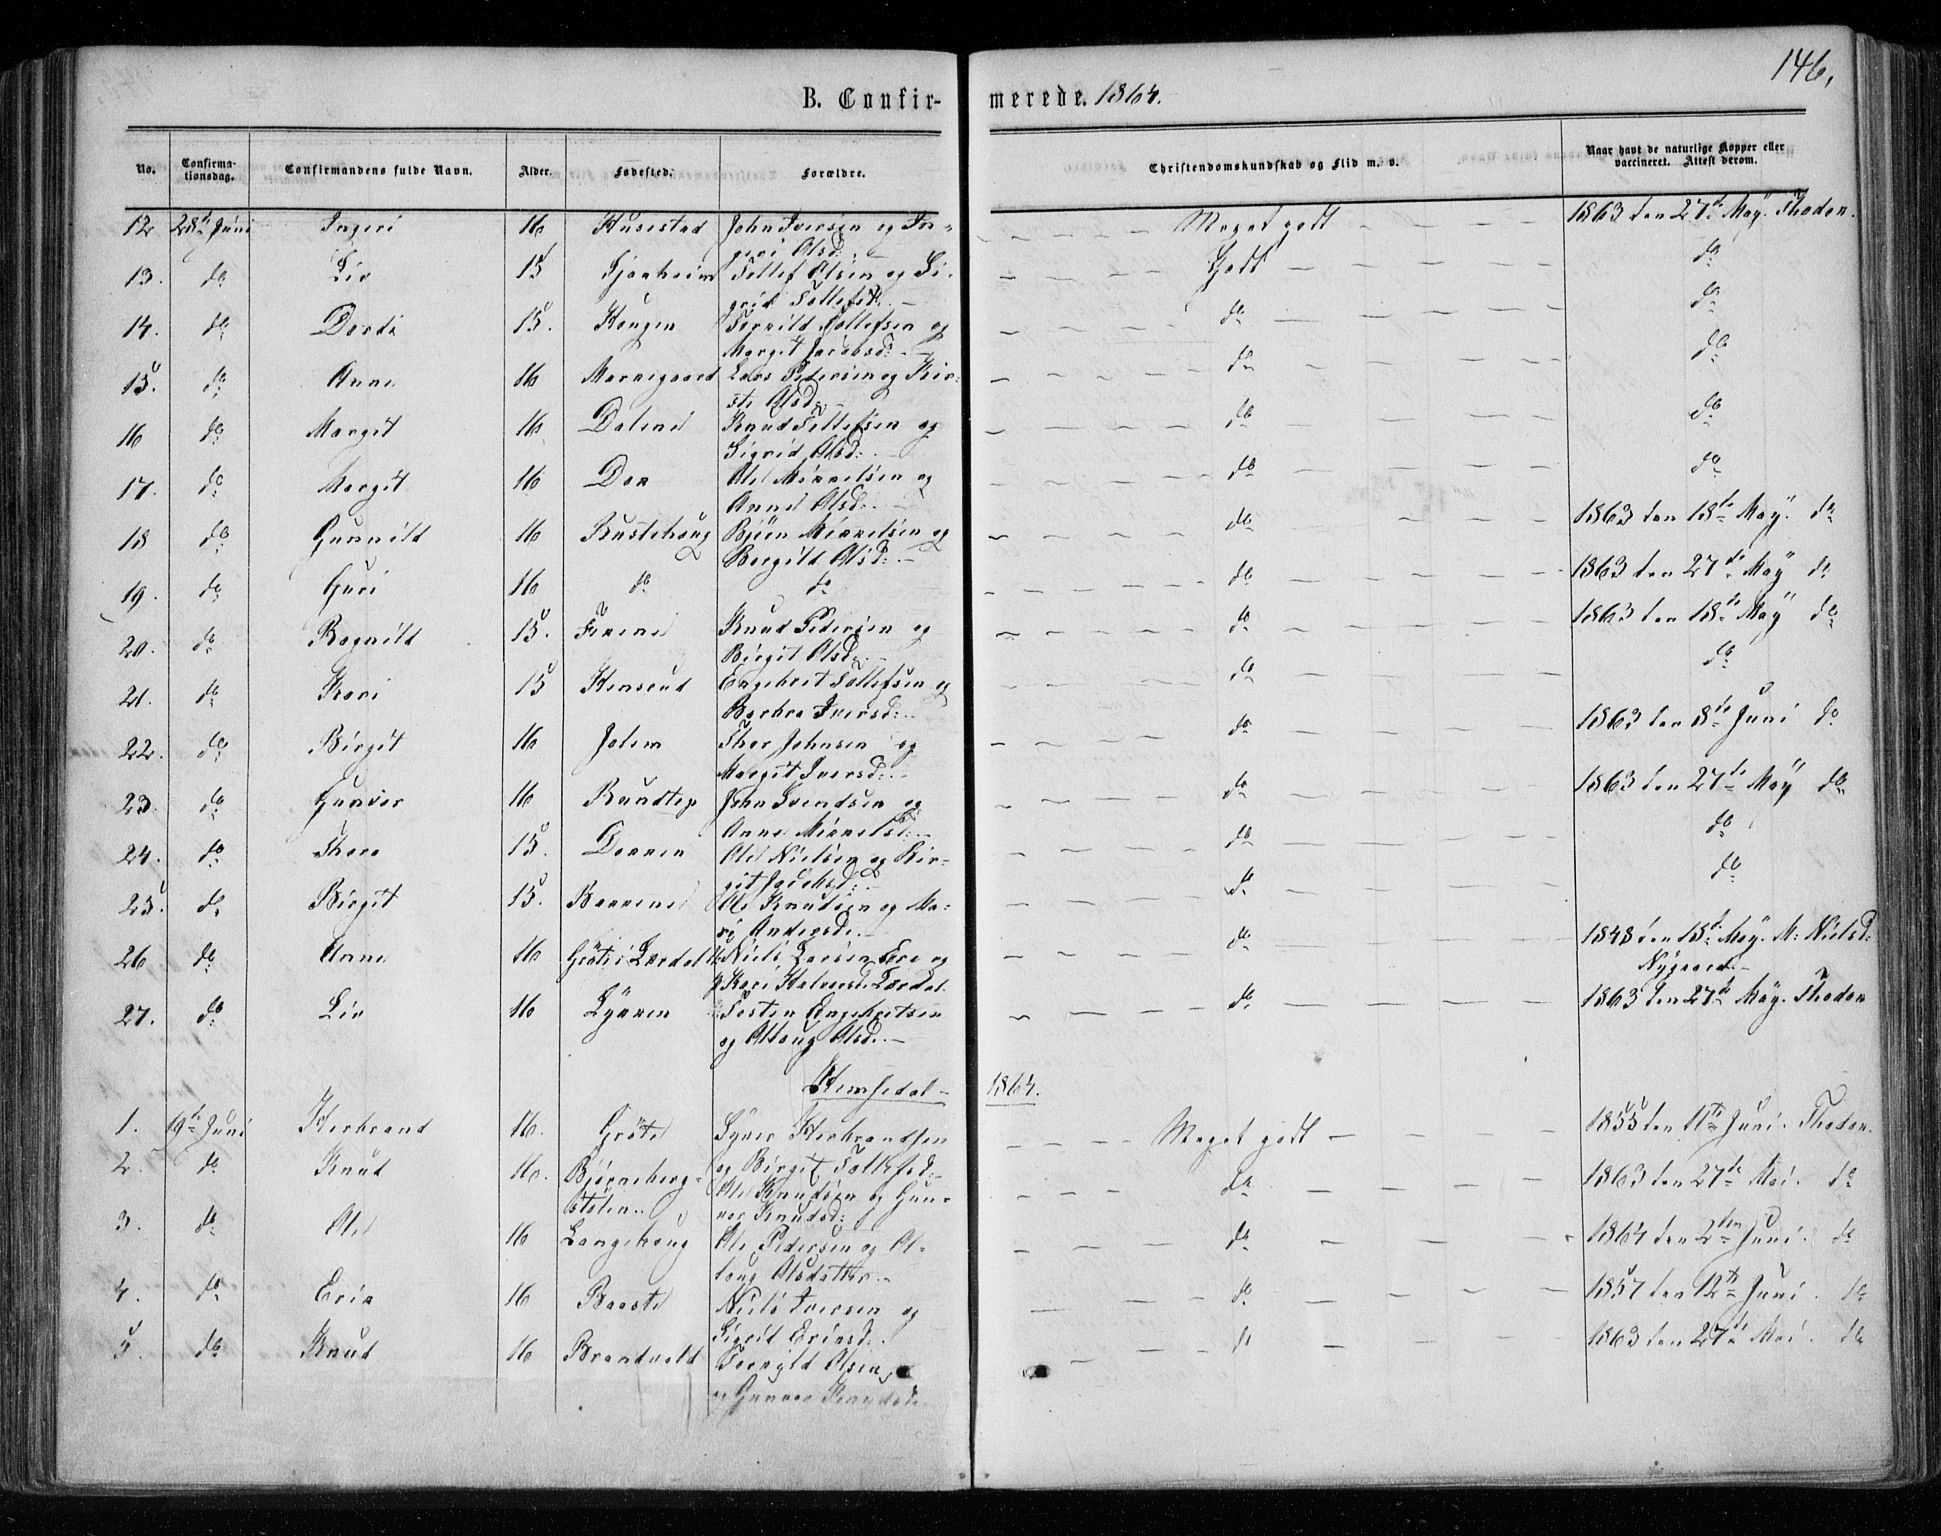 146.
B. Confirmerede. 1864.
No. Confirmationsdag. Confirmandens fulde Navn. Alder. Fødested. Forældre. Christendomskundskab og Flid m. v. Naar havt de naturlige Kopper eller vaccineret. Attest derom.
12 28de Juni Ingeri 16 Husestad John Iversen og In- Meget godt 1863 den 27de Maÿ. Thodon.
geri Olsd:
13. do Liv 15 Tollef Olsen og Si- Godt do
grid Tollefsd:
14. do Dordi 15. Haugen Tollefsen og do do
Margit Jacobsd:
15. do Anne 16 Lars Pedersen og Kir- do do
sti Olsd:
16 do Margit 16 Dalene Knud Tollefsen og do do
Sigrid Olsd:
17. do Margit 16 Dok Ole Mikkelsen og do do
Anne Olsd:
18 do Gunnild 16 Rustehaug Bjørn Mikkelsen og do 1863 den 18de Maÿ. do
Borgild Olsd:
19. do Guri 16 do do do 1863 den 27de Maÿ do
20. do Ragnild 15. Knud Pedersen og do 1863 den 18de Maÿ do
Birgit Olsd:
21. do Kari 15 Engebret Tollefsen og do do
Barbra Iversd:
22. do Birgit 16 Jolem Thor Johnsen og do 1863 den 8de Juni do
Margit Iversd:
23. do Gunvor 16 Rundtop John Svendsen og do 1863 den 27de Maÿ do
Anne Mikkelsd:
24. do Thora 15. Dokken Ole Nielsen og Bir- do do
git Jacobsd:
25. do Birgit 15. Bakkene Ole Knudsen og Ma- do do
ri Andersd:
26 do Anne 16 Grøte i Lærdal Niels Larsen Eri og do 1848 den 18de Maÿ. M: Nielsd:
Kari Halvorsd: Lærdal. Nygaard.
27. do Liv 16 Lÿkken Torsten Engebretsen do 1863 den 27de Maÿ. Thodon
og Astoug Olsd:
Hemsedal 1864.
1. 19de Juni Herbrand 16. Grøte Syver Herbrandsen Meget godt 1855 den 11te Juni. Thodon.
og Birgit Tollefsd:
2. do Knud 16. Bjørneberg- Ole Knudsen og Gun- do 1863 den 27de Mai. do
stølen. vor Knudsd:
3. do Ole 16 Langehaug Ole Pedersen og A- do 1864 den 2den Juni. do
stoug Olsdatter.
4. do Erik 16 Baaste Niels Iversen og do 1857 den 12te Juni. do
Sigrid Eriksd:
5. do Knud 16 Brandvold Torkild Olsen do 1863 den 27de Mai. do
og Gunvor Knudsd: